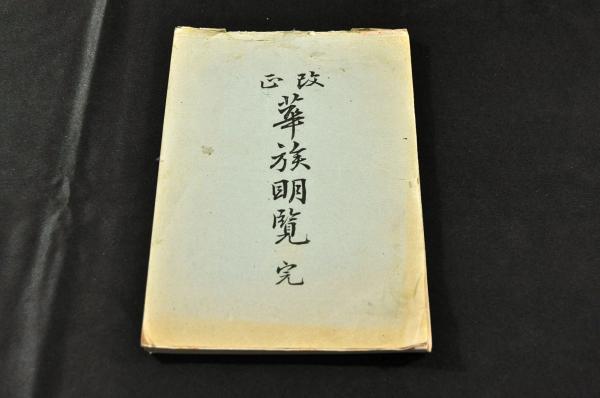 改正
華族明覧
完